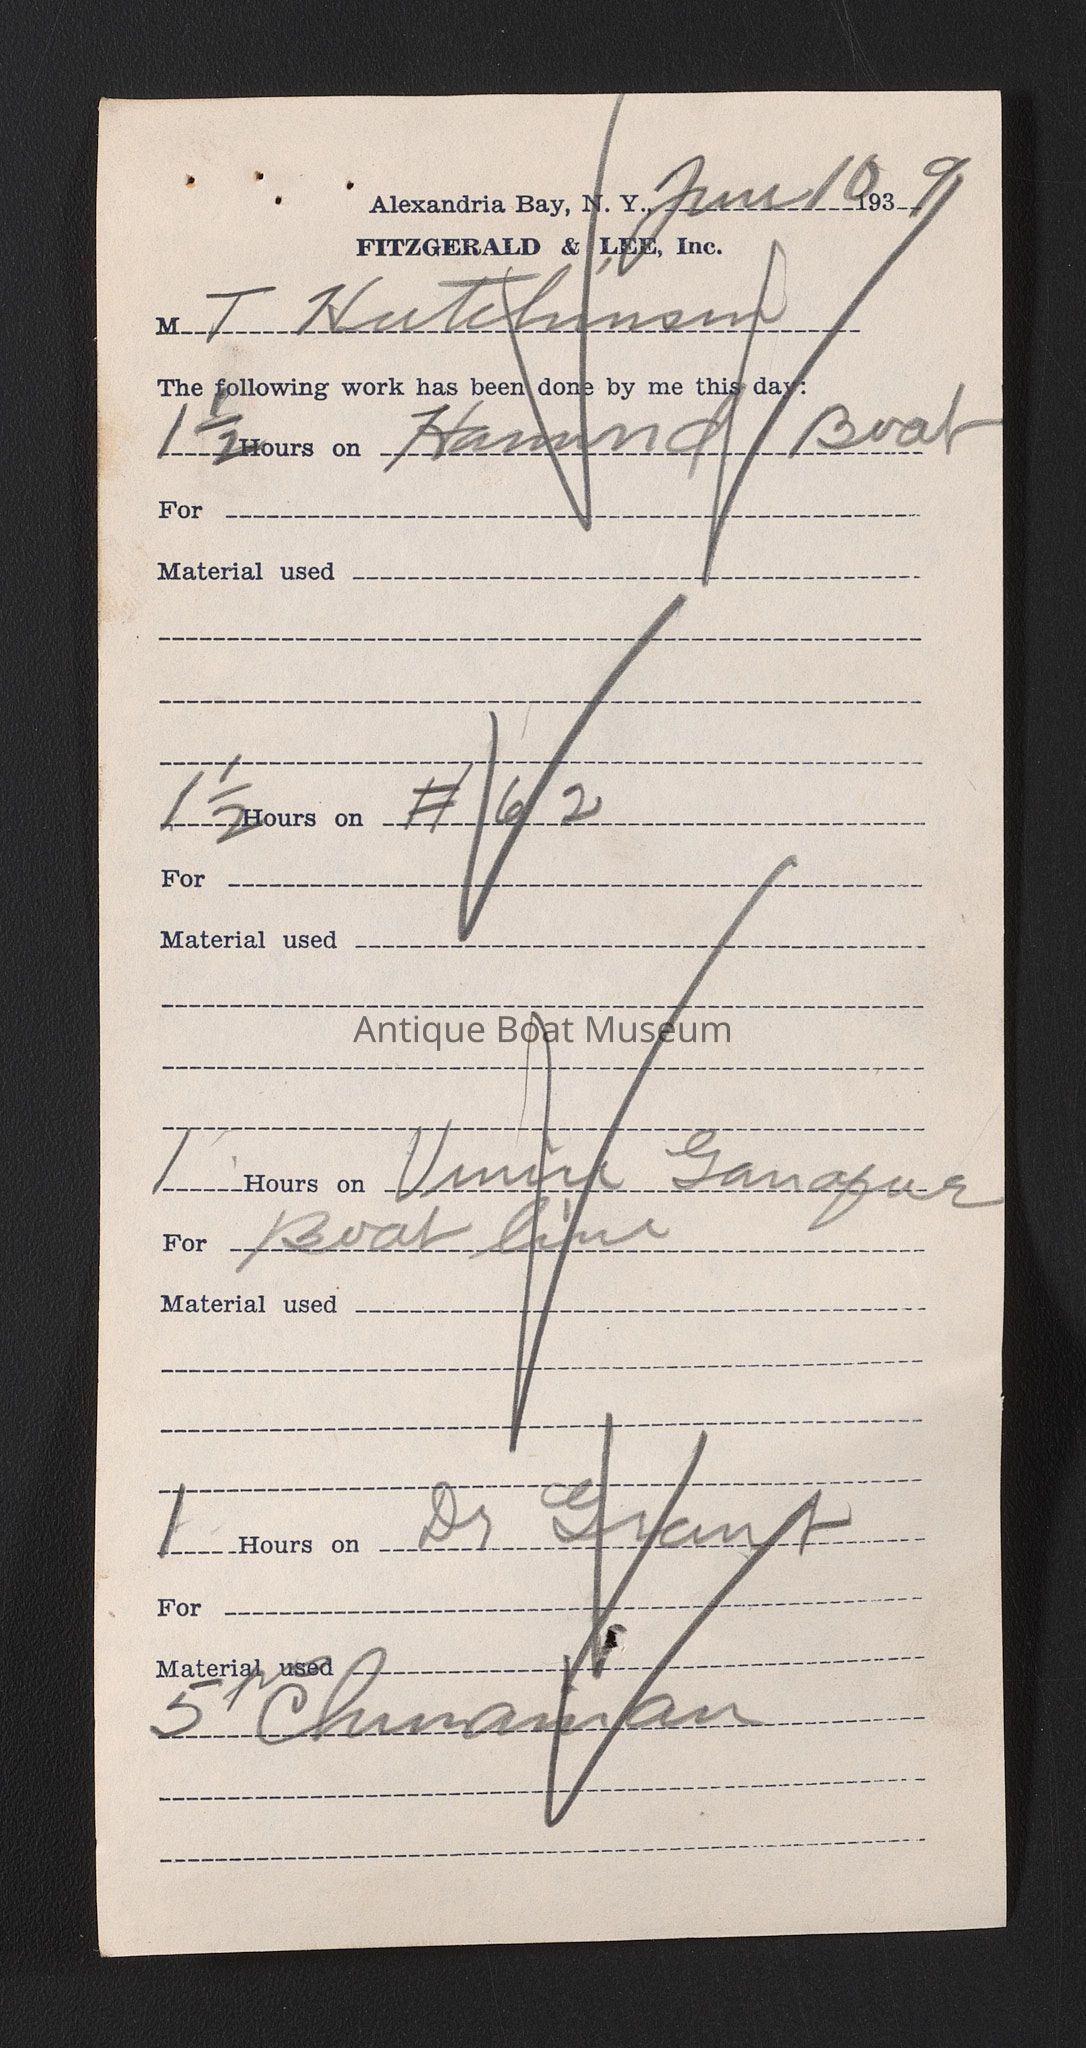 Alexandria Bay, N. Y., June 10 1939
FITZGERALD & LEE, Inc.
M T Hutchinson
The following work has been done by me this day:
1 1/2 Hours on Hammond Boat
For
Material used
1 1/2 Hours on # 62
For
Material used
Antique Boat Museum
1 Hours on
For Boat line
Material used
1 Hours on Dr Grant
For
Material used
5